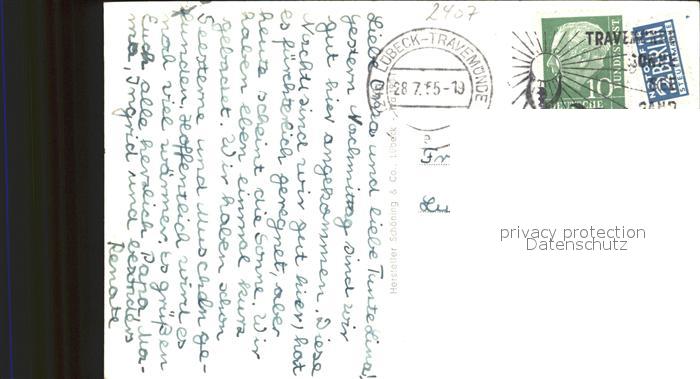 Liebe Omama und liebe Tante Lina!
gestern Nachmittag sind wir
gut hier angekommen. Diese
Nacht sind wir gut hier, hat
es fürchterlich geregnet, aber
heute scheint die Sonne. Wir
haben eben einmal kurz
gebadet. Wir haben schon
Seesterne und Muscheln ge-
funden. Hoffentlich wird es
noch viel wärmer. Es grüßen
Euch alle herzlich Papa, Ma-
ma, Ingrid und besonders
Renate
2407
LÜBECK-TRAVEMÜNDE
28.7.55-19
TRAVEMÜNDE
DEUTSCHE
BUNDESPOST
10
2
BERLIN
Hersteller Schöning & Co., Lübeck
Fr
Lü
privacy protection
Datenschutz